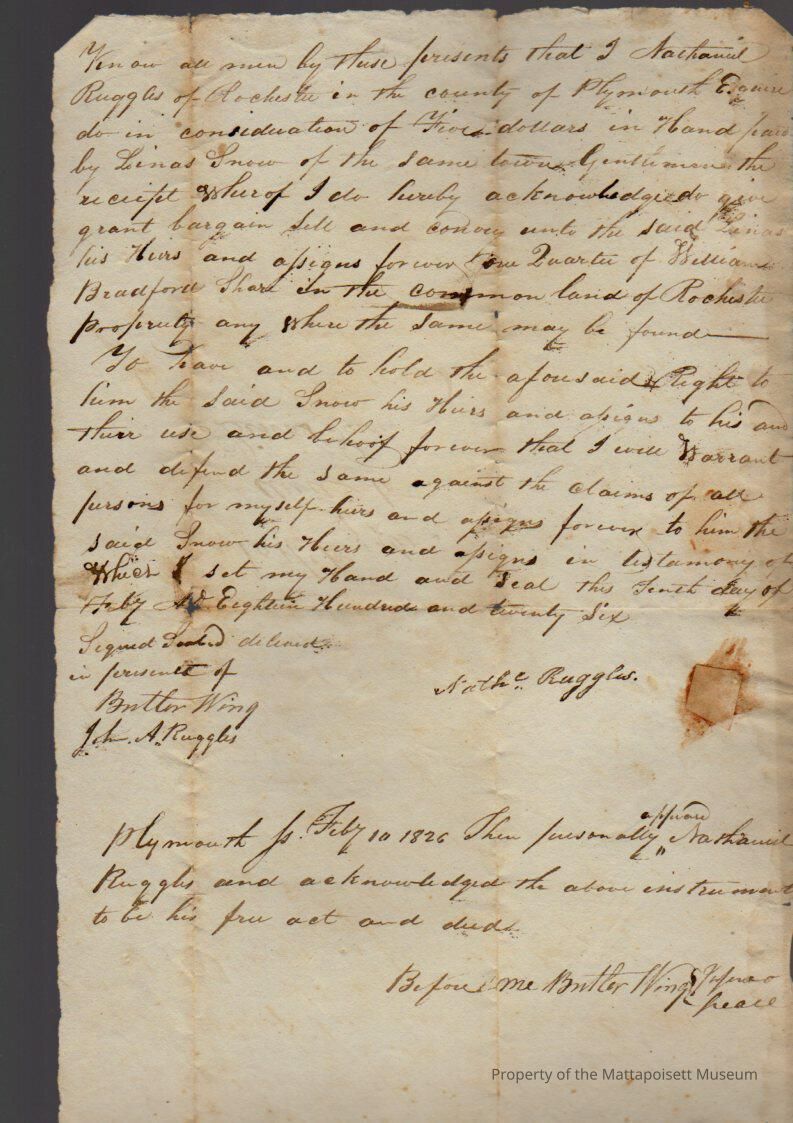 Know all men by these presents that I Nathaniel
Ruggles of Rochester in the county of Plymouth Esquire
do in consideration of Five dollars in Hand paid
by Linas Snow of the same town Gentleman the
receipt Wherof I do hereby acknowledge do give
grant bargain Sell and convey unto the said Linas
his Heirs and assigns forever one Quarter of William
Bradford Share in the common land of Rochester
Property any Where the same may be found
To Have and to hold the aforesaid Right to
him the Said Snow his Heirs and assigns to his and
their use and behoof forever that I will Warrant
and defend the same against the claims of all
persons for myself heirs and assigns forever to him the
said Snow his Heirs and assigns in testamony of
Which I set my Hand and Seal this Tenth day of
Feby AD Eighteen Hundred and twenty Six
Signed Sealed delivered
in presents of
Nathel Ruggles.
Butler Wing
John A. Ruggles
Plymouth Ss. Feby 10 1826 Then personally appeared Nathaniel
Ruggles and acknowledged the above instrument
to be his free act and deed
Before me Butler Wing Justice o
peace
Property of the Mattapoisett Museum